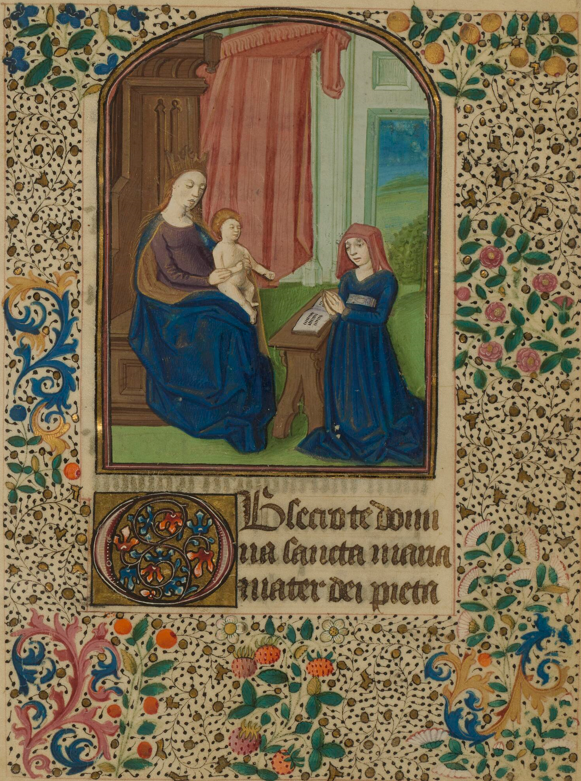 Obsecro te domi
na sancta maria
mater dei pieta